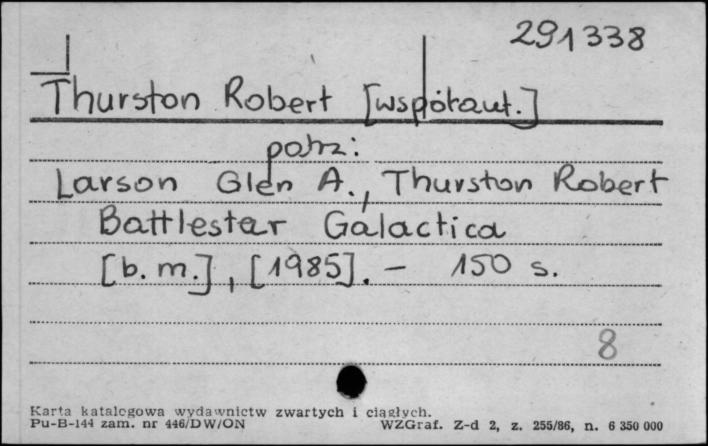 291338
Thurston Robert [współaut.]
patrz:
Larson Glen A., Thurston Robert
Battlestar Galactica
[b. m.], [1985]. - 150 s.
8
Karta katalogowa wydawnictw zwartych i ciągłych.
Pu-B-144 zam. nr 446/DW/ON WZGraf. Z-d 2, z. 255/86, n. 6 350 000